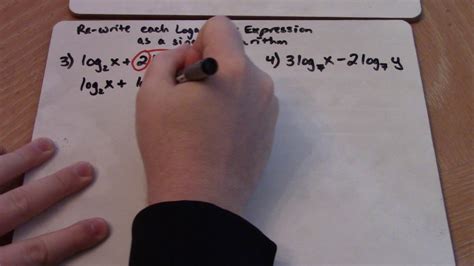 Re-write each Loga Expression
as a sin arithm
3) log₂x + 2
4) 3log₇x - 2log₇y
log₂x +